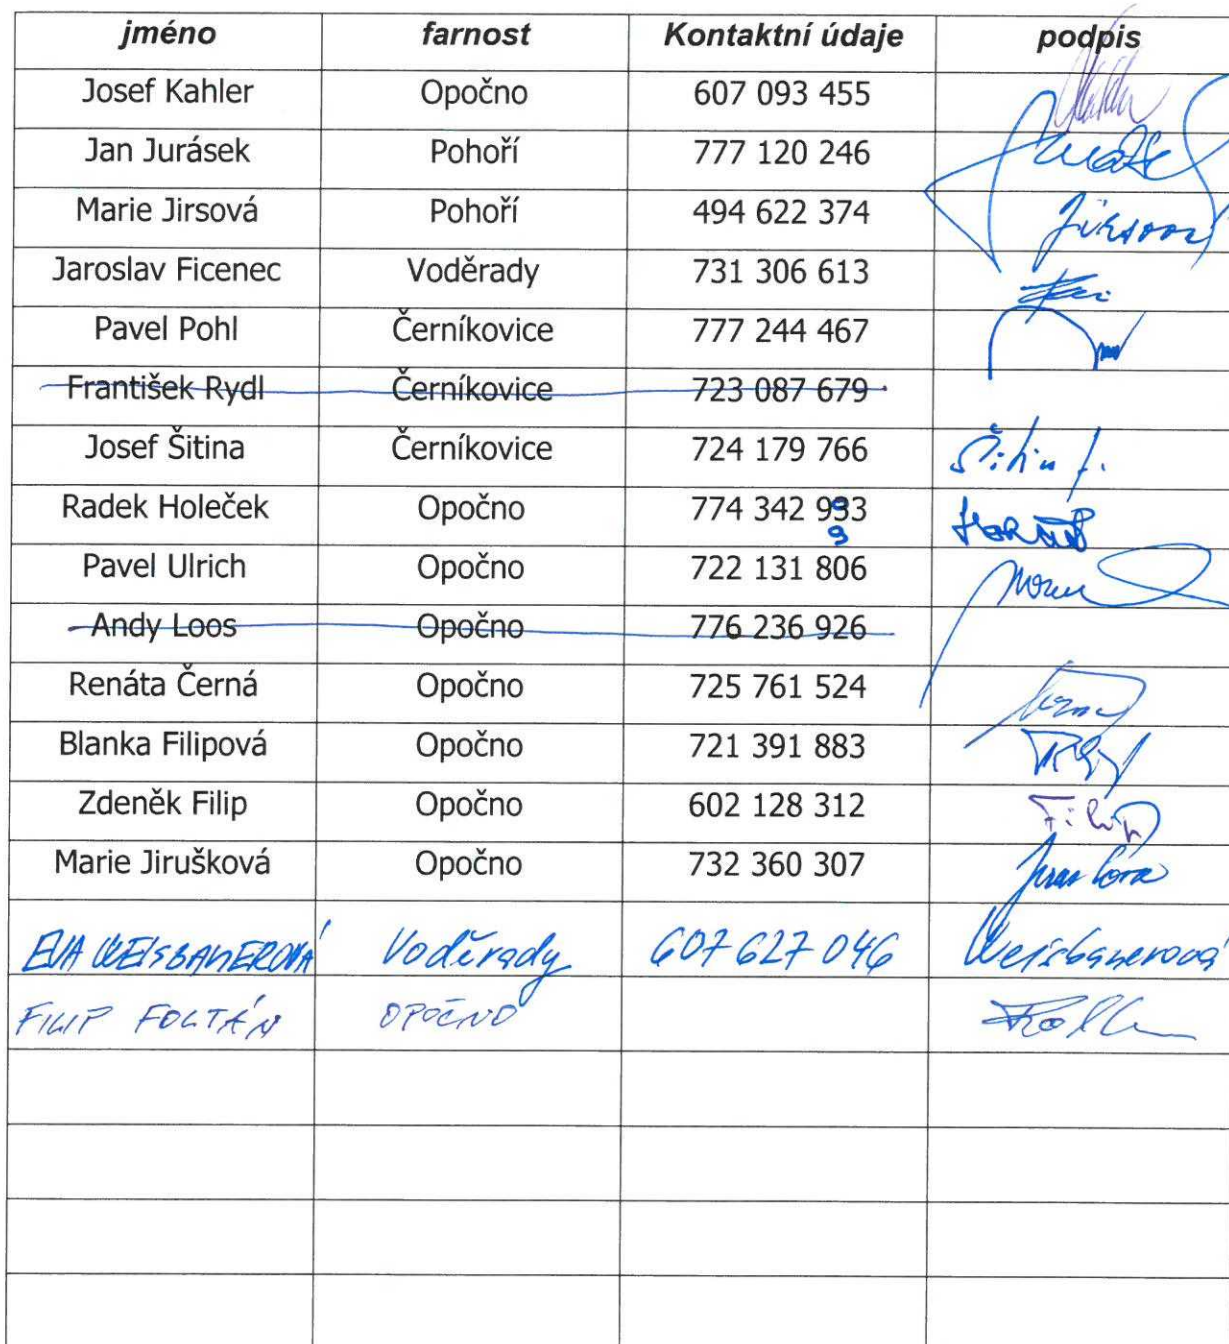 jméno farnost Kontaktní údaje podpis
Josef Kahler Opočno 607 093 455
Jan Jurásek Pohoří 777 120 246
Marie Jirsová Pohoří 494 622 374 Jirsová
Jaroslav Ficenec Voděrady 731 306 613
Pavel Pohl Černíkovice 777 244 467
František Rydl Černíkovice 723 087 679
Josef Šitina Černíkovice 724 179 766
Radek Holeček Opočno 774 342 933
9
Pavel Ulrich Opočno 722 131 806
Andy Loos Opočno 776 236 926
Renáta Černá Opočno 725 761 524
Blanka Filipová Opočno 721 391 883
Zdeněk Filip Opočno 602 128 312 Filip
Marie Jirušková Opočno 732 360 307
EVA WEISBAUEROVÁ Voděrady 607 627 046 Weisbauerová
FILIP FOLTÁN OPOČNO